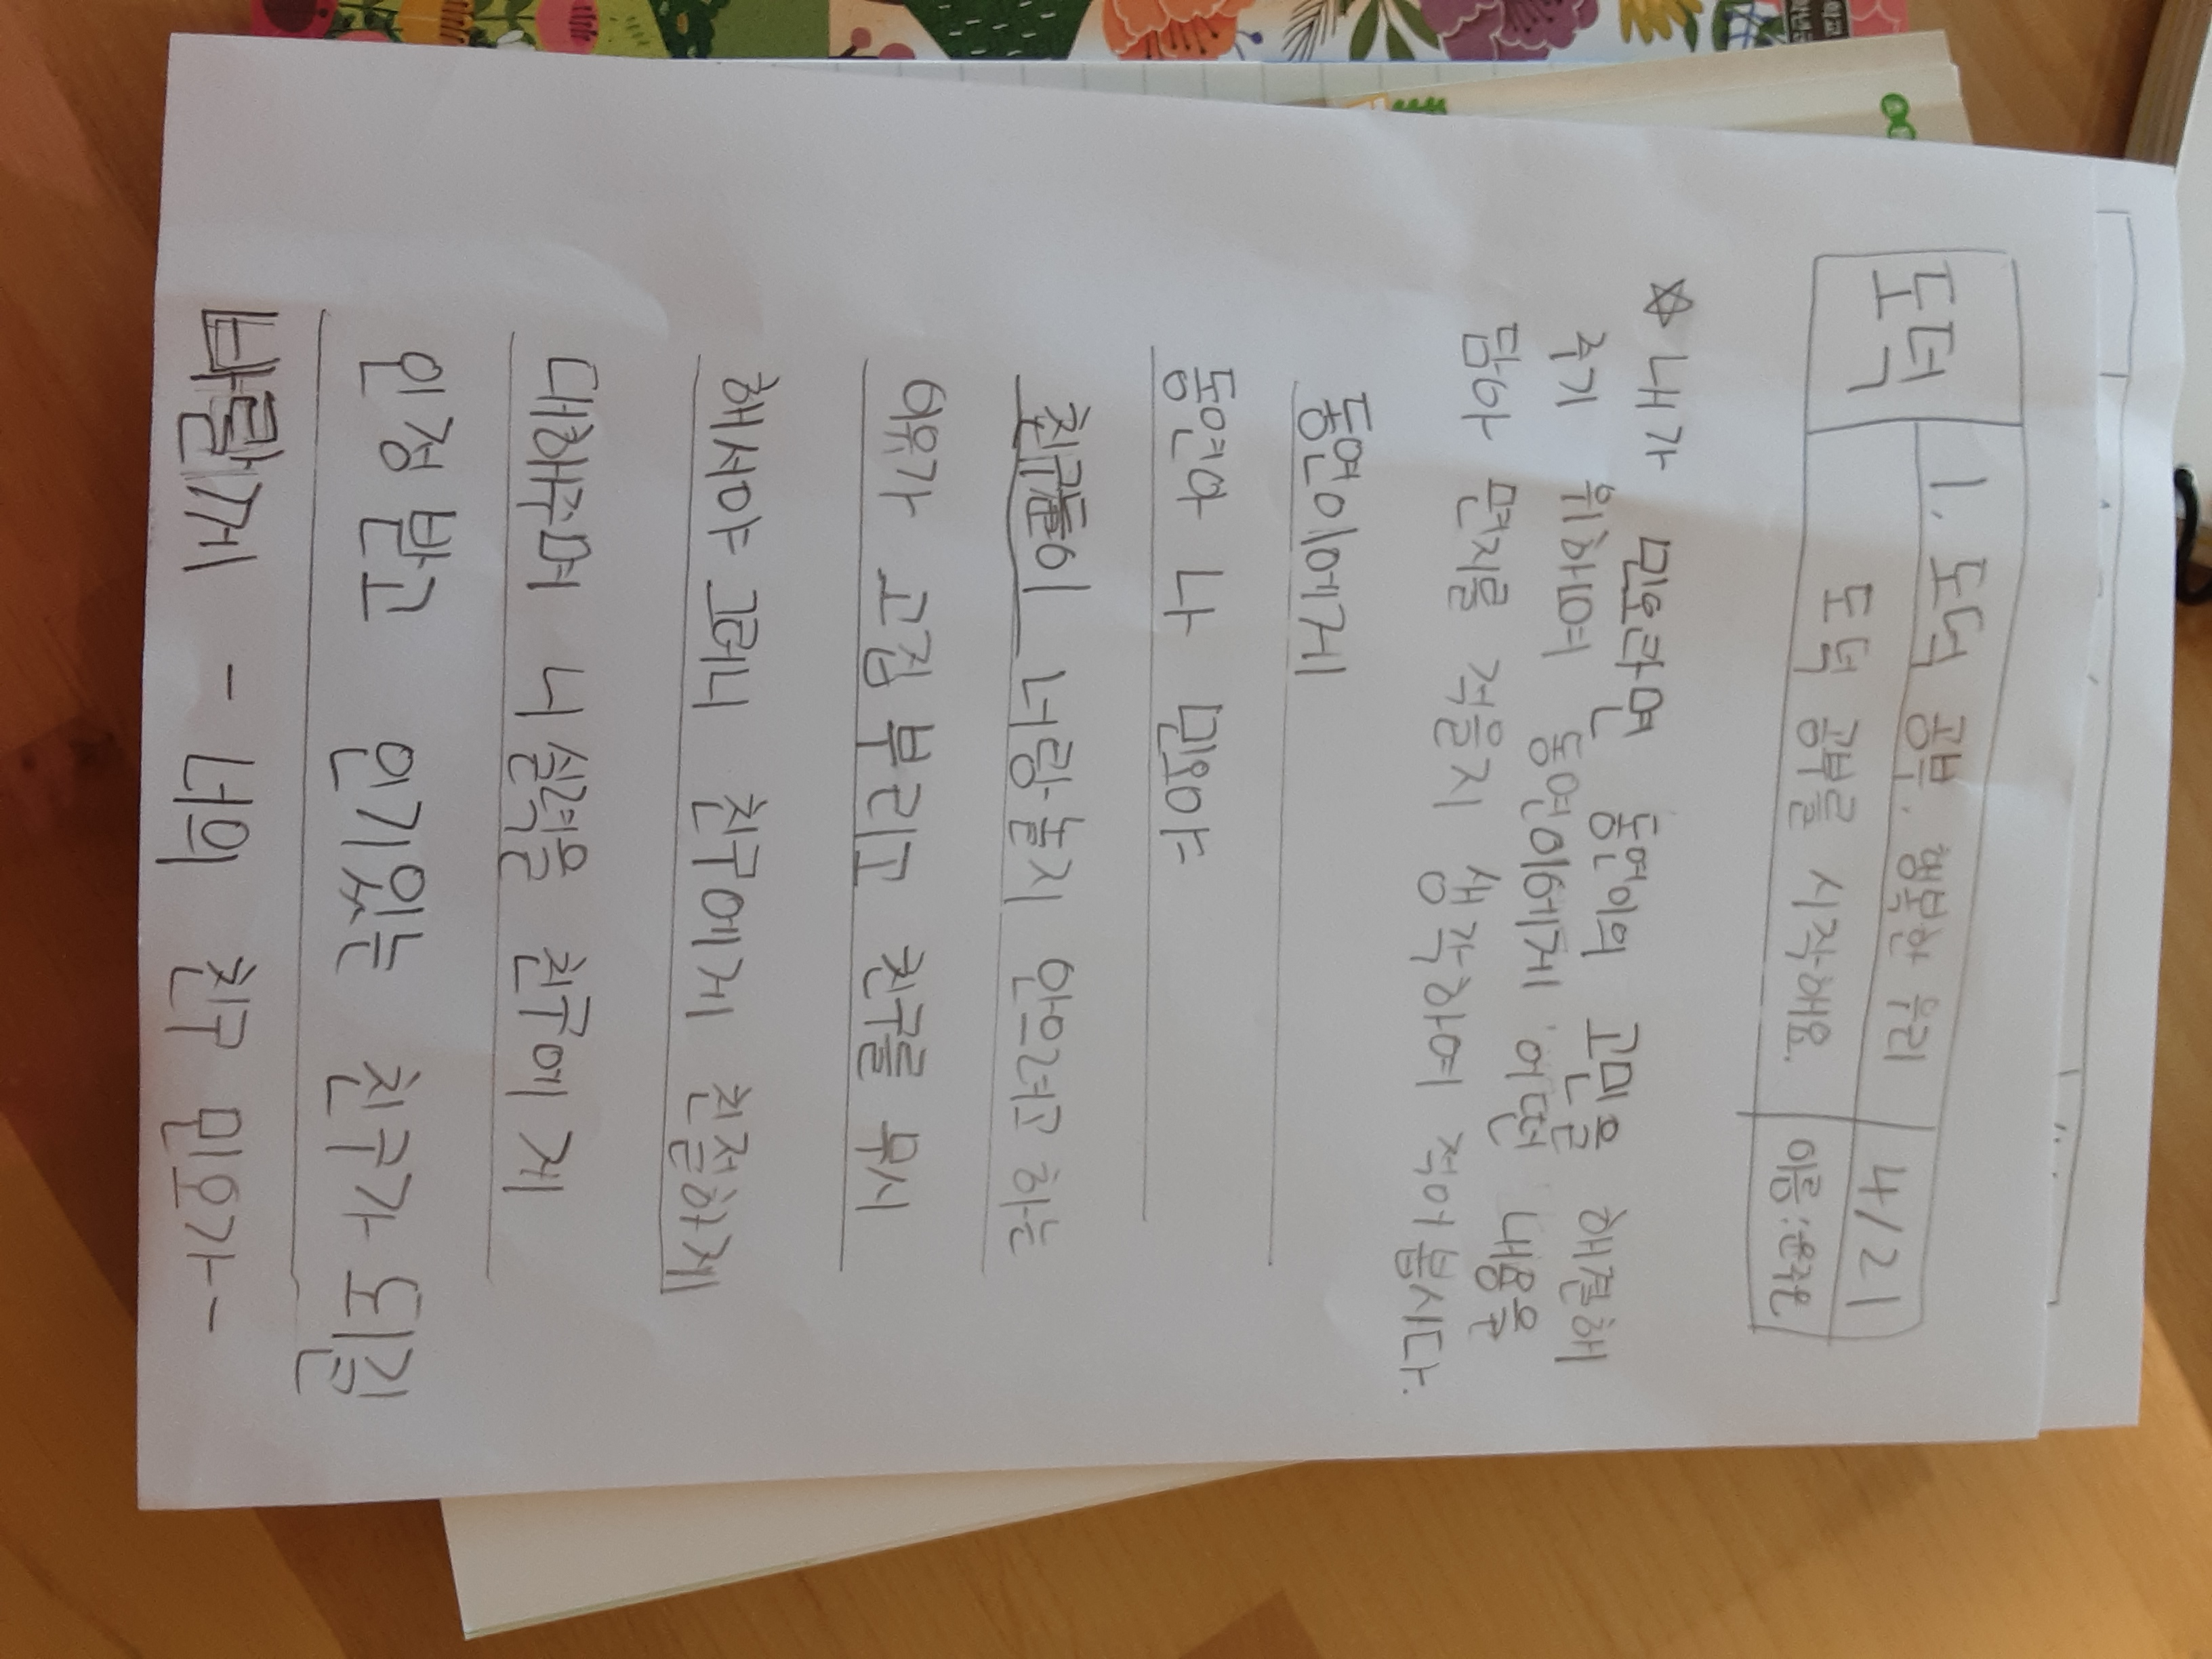 도덕
1. 도덕 공부, 행복한 우리
4/21
도덕 공부를 시작해요.
이름:
☆ 내가 민요라면 동연이의 고민을 해결해
주기 위하여 동연이에게 어떤 내용을
담아 편지를 적을지 생각하여 적어봅시다.
동연이에게
동연아 나 민요야
친구들이 너랑 놀지 안으려고 하는
이유가 고집 부리고 친구를 무시
해서야 그러니 친구에게 친절하게
대해주며 니 실력을 친구에게
인정 받고 인기있는 친구가 되길
바랄게 - 너의 친구 민요가 -